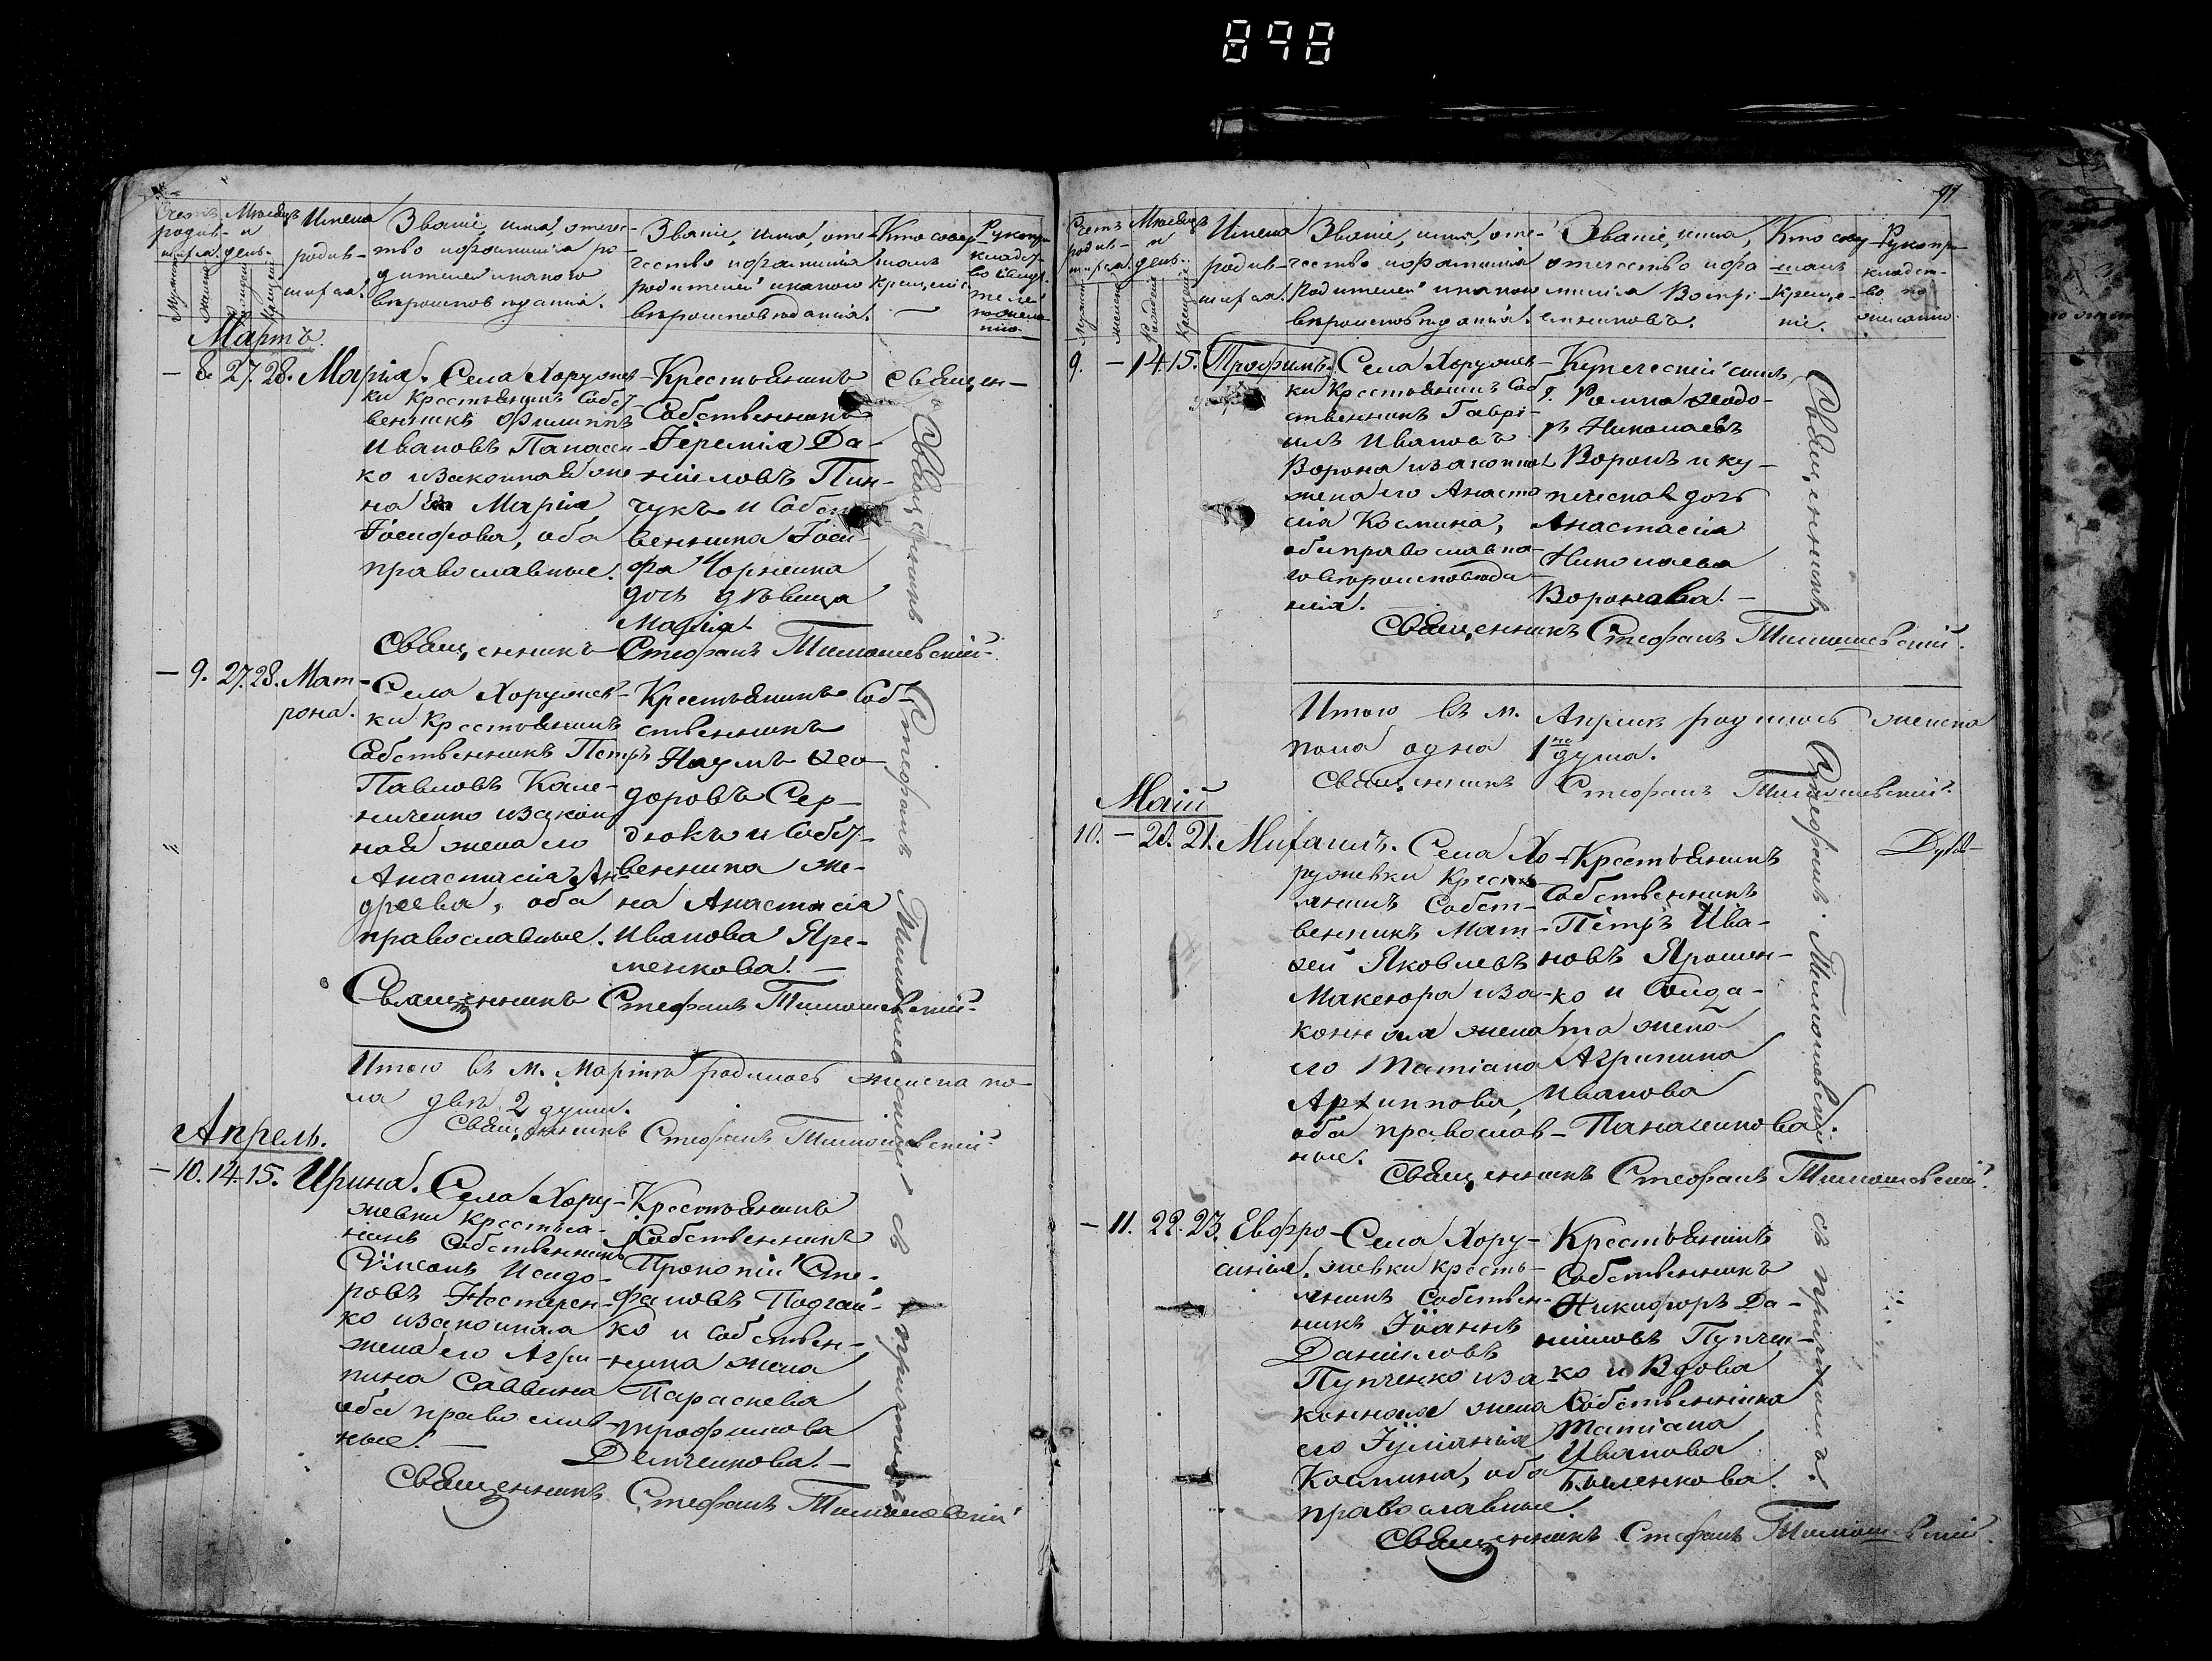 898
Счетъ родив-шихся.
Мѣсяцъ и день.
Имена родив-шихся.
Званіе, имя, отече-
ство и фамилія ро-
дителей и какого
вѣроисповѣданія.
Званіе, имя, оте-
чество и фамилія
родителей и какого
вѣроисповѣданія.
Кто совер-
шалъ
крещеніе.
Рукопри-
кладст-
во свидѣ-
телей
по жела-
нію.
Мартъ.
— 8. 27. 28. Марія.
Села Хоружев-
ки Крестьянинъ Собст-
венникъ Филиппъ
Ивановъ Панасен-
ко и законная же-
на его Марія
Іосифова, оба
православные.
Крестьянинъ
Собственникъ
Іеремія Да-
ніиловъ Пин-
чукъ и Собст-
венника Іоси-
фа Чорненка
дочь дѣвица
Марія.
Священ-
Священникъ Стефанъ Тимошевскій.
— 9. 27. 28. Мат-
рона.
Села Хоружев-
ки Крестьянинъ
Собственникъ Петръ
Павловъ Кале-
ниченко и закон-
ная жена его
Анастасія Ан-
дреева, оба
православные.
Крестьянинъ Соб-
ственникъ
Наумъ Ѳео-
доровъ Сер-
дюкъ и Собст-
венника же-
на Анастасія
Иванова Яре-
менкова. —
Священникъ Стефанъ Тимошевскій.
Итого въ м. Мартѣ родилось женска по-
ла двѣ 2 души.
Священникъ Стефанъ Тимошевскій.
Апрель.
— 10. 14. 15. Ирина.
Села Хору-
жевки Крестья-
нинъ Собственникъ
Сѵмеонъ Исидо-
ровъ Нестерен-
ко и законная
жена его Агри-
пина Саввина
оба православ-
ные. —
Крестьянинъ
Собственникъ
Прокопій Сте-
фановъ Подгай-
ко и Собствен-
ника жена
Параскева
Трофимова
Демченкова. —
Священникъ Стефанъ Тимошевскій
Священникъ Стефанъ Тимошевскій съ причтомъ
91
Счетъ родив-шихся.
Мѣсяцъ и день.
Имена родив-шихся.
Званіе, имя, оте-
чество и фамилія
родителей и какого
вѣроисповѣданія.
Званіе, имя,
отечество и фа-
милія Воспрі-
емниковъ.
Кто сове-
шалъ
креще-
ніе.
Рукопри-
кладст-
во по
желанію.
9. — 14. 15. Трофимъ.
Села Хоружев-
ки Крестьянинъ Соб-
ственникъ Гаврі-
илъ Ивановъ
Ворона и законная
жена его Анаста-
сія Космина,
оба православна-
го вѣроисповѣда-
нія.
Купеческій сынъ
г. Ромна Ѳеодо-
ръ Николаевъ
Воронъ и ку-
печеская дочь
Анастасія
Николаева
Воронова. —
Священникъ Стефанъ Тимошевскій.
Итого въ м. Априлѣ родилось женска
пола одна 1на душа.
Священникъ Стефанъ Тимошевскій.
Маій
10. — 20. 21. Михаилъ.
Села Хо-
ружевки Кресть-
янинъ Собст-
венникъ Мат-
ѳей Яковлевъ
Макеюра и за-
конная жена
его Татіана
Архиппова,
оба православ-
ные.
Крестьянинъ
Собственникъ
Петръ Ива-
новъ Ярошен-
ко и Солда-
та жена
Агрипина
Иванова
Панаcенкова.
Священникъ Стефанъ Тимошевскій.
— 11. 22. 23. Евфро-
синія.
Села Хору-
жевки Кресть-
янинъ Собствен-
никъ Іоаннъ
Даніиловъ
Пупченко и за-
конная жена
его Іуліанія
Космина, оба
православные.
Крестьянинъ
Собственникъ
Никифоръ Да-
ніиловъ Пупчен-
ко и Вдова
Собственника
Татіана
Иванова
Биленкова.
Священникъ Стефанъ Тимошевскій.
Священникъ Стефанъ Тимошевскій съ причтомъ.